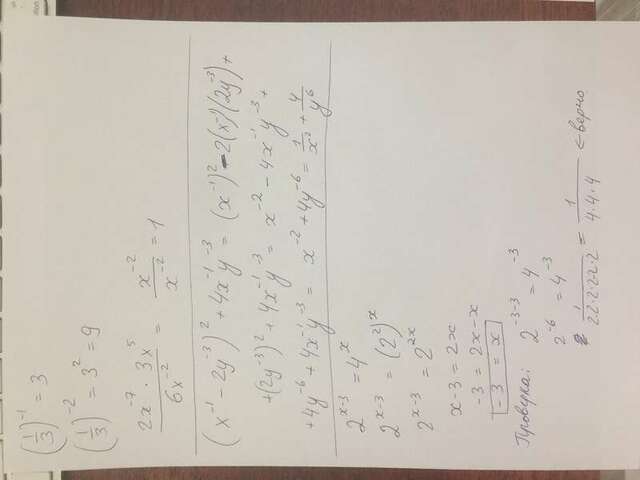 (1/3)^-1 = 3
(1/3)^-2 = 3^2 = 9
(2x^-7 · 3x^5)/(6x^-2) = x^-2/x^-2 = 1
(x^-1 - 2y^-3)^2 + 4x^-1y^-3 = (x^-1)^2 - 2(x^-1)(2y^-3) +
+ (2y^-3)^2 + 4x^-1y^-3 = x^-2 - 4x^-1y^-3 +
+ 4y^-6 + 4x^-1y^-3 = x^-2 + 4y^-6 = 1/x^2 + 4/y^6
2^x-3 = 4^x
2^x-3 = (2^2)^x
2^x-3 = 2^2x
x-3 = 2x
-3 = 2x-x
-3 = x
Проверка: 2^-3-3 = 4^-3
2^-6 = 4^-3
1/22·2·22·2 = 1/4·4·4 < верно